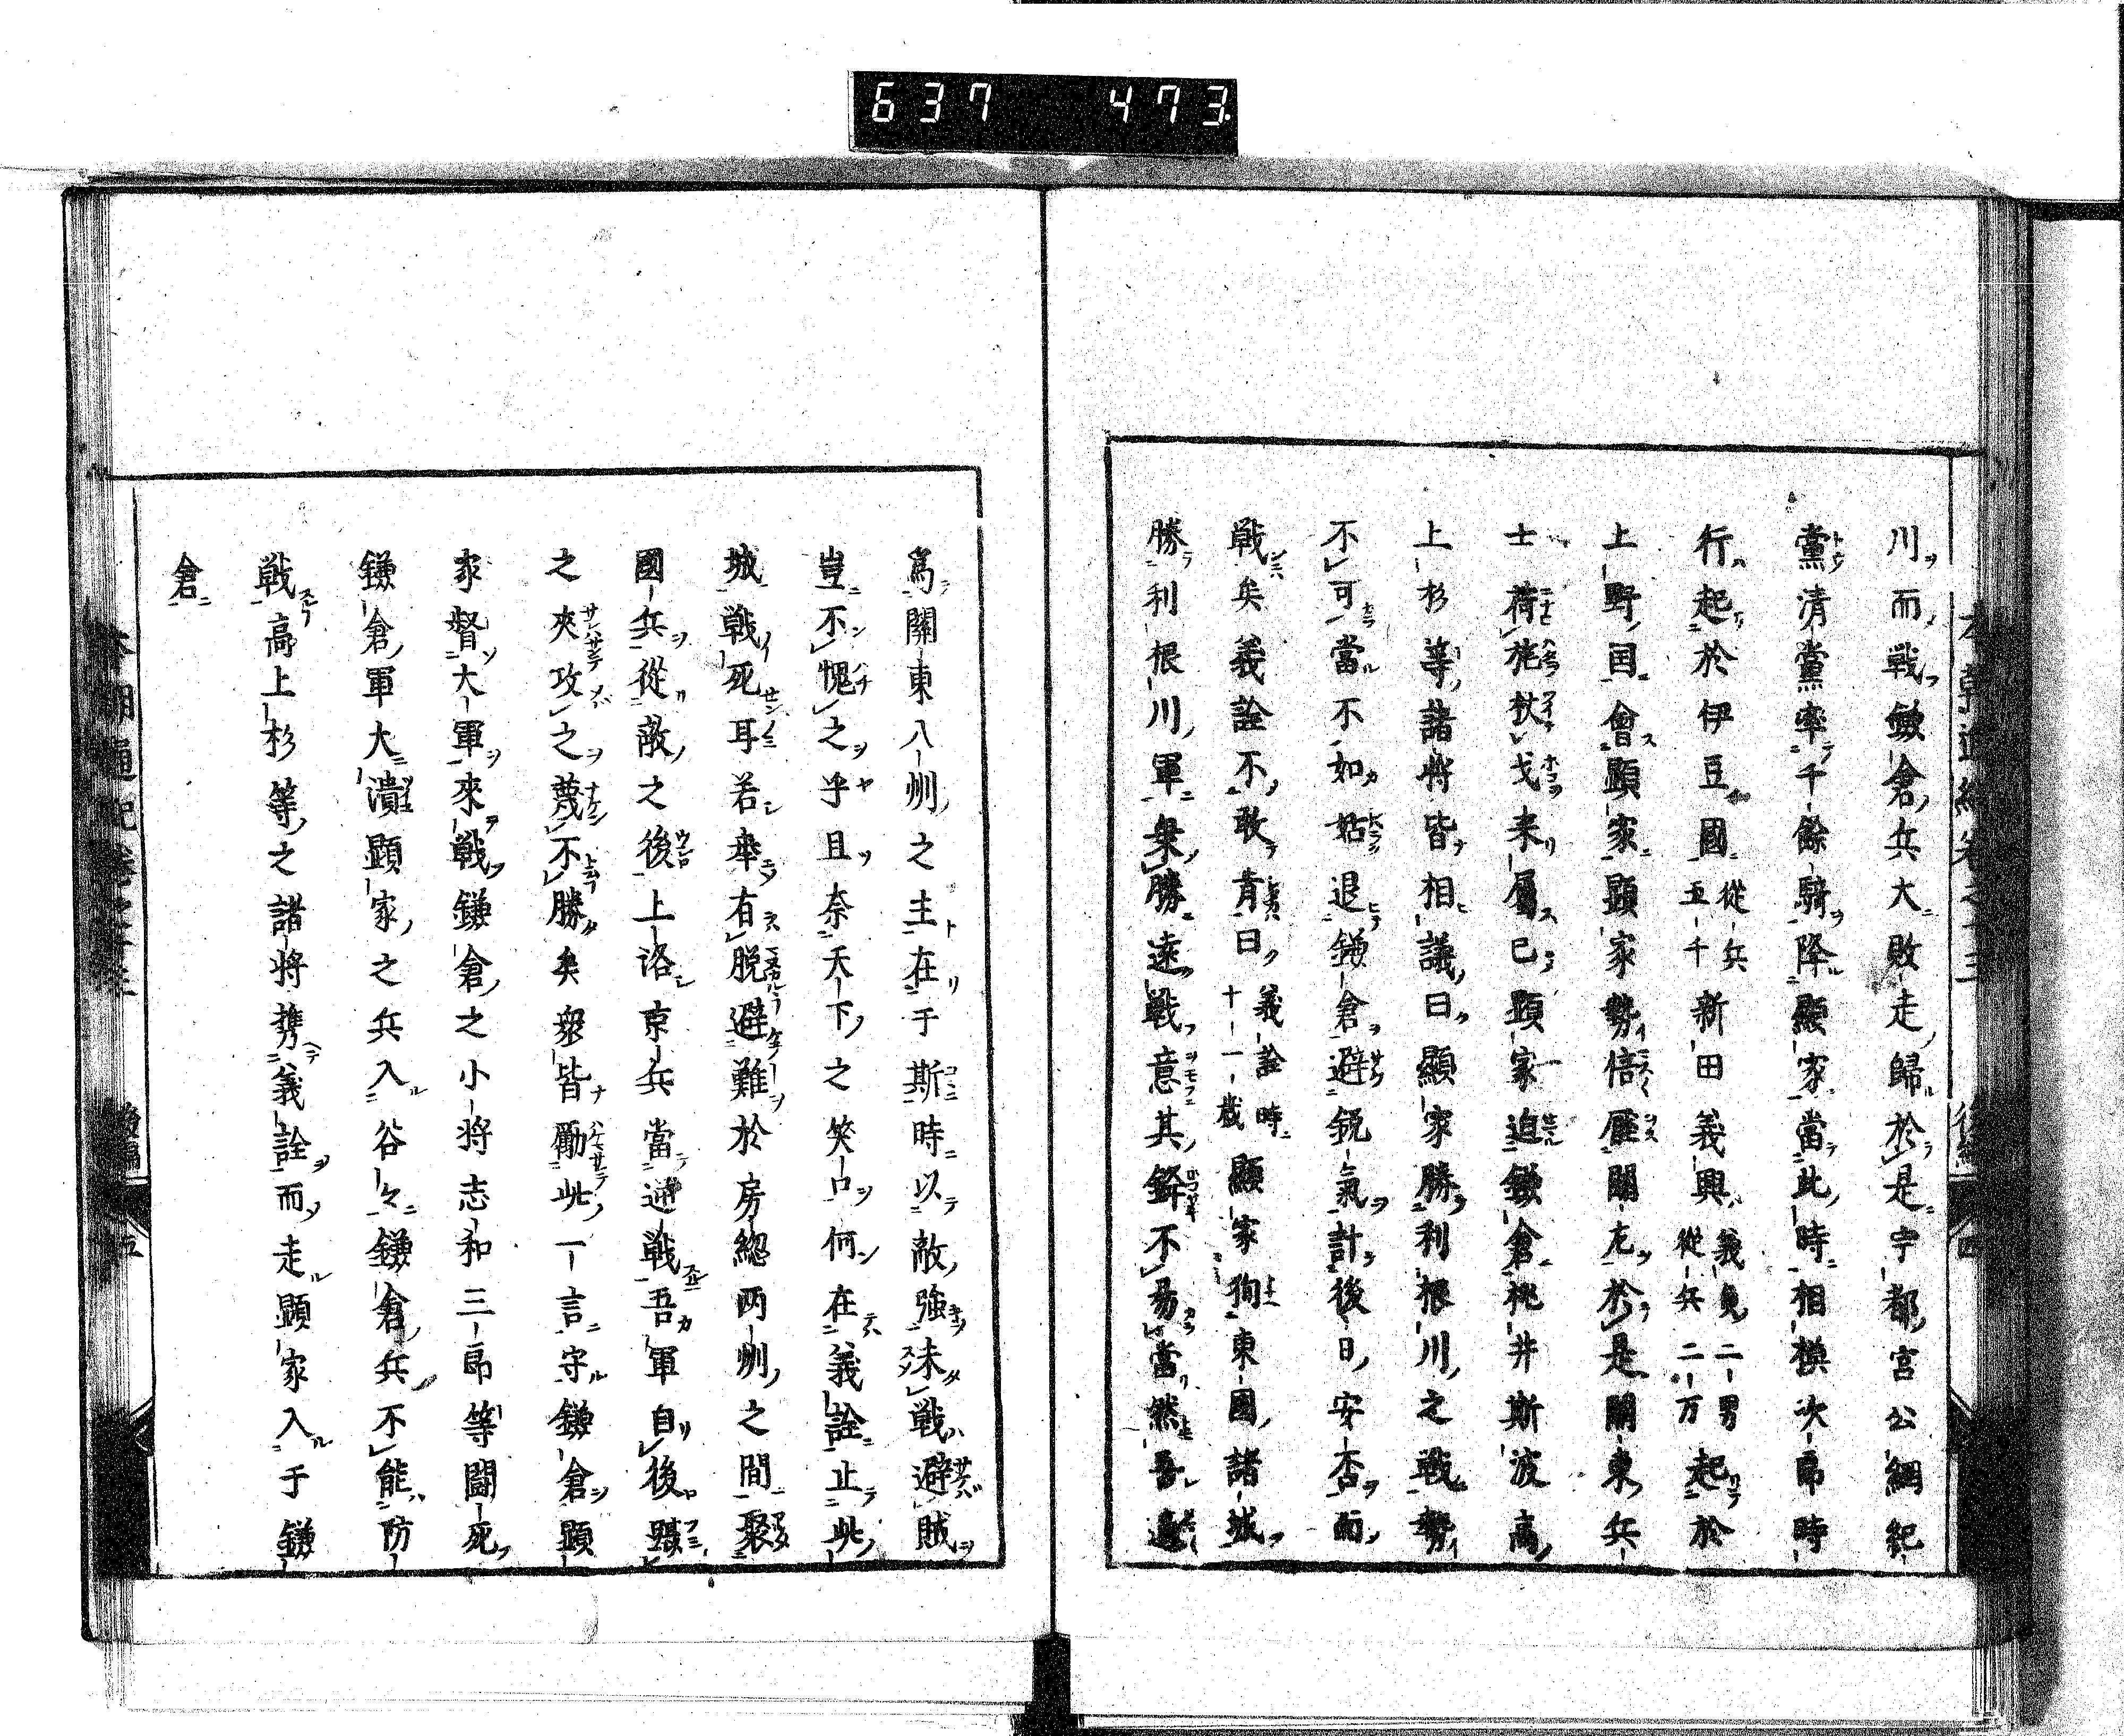 637 473
川而戰鎌倉兵大敗走歸於是宇都宮公綱紀
黨清黨率千餘騎降顯家當此時相模次郎時
行起於伊豆國從兵五千新田義興義貞二男從兵二万起於
上野国會顯家顯家勢倍歴關左於是關東兵
士荷旄杖戈来屬已顯家迫鎌倉桃井斯波高
上杉等諸将皆相議曰顯家勝利根川之戰勢
不可當不如姑退鎌倉避鋭氣計後日安否而
戰矣義詮不敢肯曰義詮時十一歳顯家狥東國諸城
勝利根川軍乗勝遠戰意其鋒不易當然吾
為關東八州之主在于斯時以敵強未戰避賊
豈不愧之乎且奈天下之笑口何在義詮止此
城戰死耳若舉有脱避難於房総两州之間聚
國兵從敵之後上洛京兵當逓戰吾軍自後躡
之夾攻之蔑不勝矣衆皆勵此一言守鎌倉顕
家督大軍來戰鎌倉之小将志和三郎等闘死
鎌倉軍大潰顕家之兵入谷々鎌倉兵不能防
戰高上杉等之諸将携義詮而走顕家入于鎌
倉
本朝通紀巻之十三 後編 五